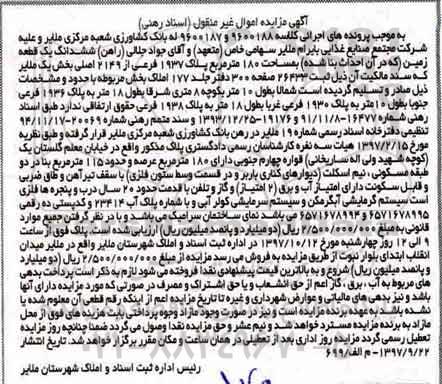 آگهی مزایده اموال غیر منقول (اسناد رهنی)
به موجب پرونده های اجرائی کلاسه ۹۶۰۰۱۸۸ و ۹۶۰۰۱۸۷ له بانک کشاورزی شعبه مرکزی ملایر و علیه
شرکت مجتمع صنایع غذایی بایرام ملایر سهامی خاص (متعهد) و آقای جواد جلالی (راهن) ششدانگ یک قطعه
زمین (که در آن احداث بنا شده) بمساحت ۱۸۰ مترمربع پلاک ۱۹۳۷ فرعی از ۲۱۴۹ اصلی بخش یک ملایر
که سند مالکیت آن ذیل ثبت ۲۶۴۳۳ صفحه ۳۰۰ دفتر جلد ۱۷۷ املاک بخش مربوطه با حدود و مشخصات
ذیل صادر و تسلیم گردیده است شمالا بطول ۱۰ متر بکوچه ۸ متری شرقا بطول ۱۸ متر به پلاک ۱۹۳۶ فرعی
جنوبا بطول ۱۰ متر به پلاک ۱۹۳۰ فرعی غربا بطول ۱۸ متر به پلاک ۱۹۳۸ فرعی حقوق ارتفاقی ندارد طبق اسناد
رهنی شماره ۱۶۴۷۷-۹۱/۱۱/۸ و ۱۹۱۷۶-۱۳۹۳/۱۲/۲۵ و سند متمم رهنی شماره ۲۰۰۶۹-۹۴/۱۱/۱۷
تنظیمی دفترخانه اسناد رسمی شماره ۱۹ ملایر در رهن بانک کشاورزی شعبه مرکزی ملایر قرار گرفته و طبق نظریه
مورخ ۱۳۹۷/۲/۱۵ هیات سه نفره کارشناسان رسمی دادگستری پلاک مذکور واقع در خیابان معلم گلستان یک
(کوچه شهید ولی اله ساریخانی) قواره چهارم جنوبی دارای ۱۸۰ مترمربع عرصه و حدود ۱۱۵ مترمربع بنا در دو
طبقه مسکونی، نیم اسکلت (دیوارهای کناری باربر و در قسمت وسط ستون فلزی) با سقف تیرآهن و طاق ضربی
و قابل سکونت دارای امتیاز آب و برق (۲ امتیاز) و گاز و تلفن با قدمت حدود ۲۰ سال درب و پنجره ها فلزی
است سیستم گرمایشی آبگرمکن و سیستم سرمایشی کولر آبی و با شماره پلاک آب ۲۳۴۱۴ و کدپستی ده رقمی
۶۵۷۱۶۷۸۹۹۵ و ۶۵۷۱۶۷۸۹۹۴ می باشد نمای ساختمان سرامیک می باشد و با در نظر گرفتن جمیع موارد
قانونی به مبلغ ۲/۵۰۰/۰۰۰/۰۰۰ ریال (دو میلیارد و پانصد میلیون ریال) ارزیابی شده است. پلاک فوق از ساعت
۹ الی ۱۲ روز چهارشنبه مورخ ۱۳۹۷/۱۰/۱۲ در اداره ثبت اسناد و املاک شهرستان ملایر واقع در ملایر میدان
انقلاب ابتدای بلوار نبوت از طریق مزایده به فروش می رسد مزایده از مبلغ ۲/۵۰۰/۰۰۰/۰۰۰ ریال (دو میلیارد
و پانصد میلیون ریال) شروع و به بالاترین قیمت پیشنهادی نقدا فروخته می شود لازم به ذکر است پرداخت بدهی
های مربوط به آب، برق، گاز اعم از حق انشعاب و یا حق اشتراک و مصرف در صورتی که مورد مزایده دارای آنها
باشد و نیز بدهی های مالیاتی و عوارض شهرداری و غیره تا تاریخ مزایده اعم از اینکه رقم قطعی آن معلوم شده یا
نشده باشد به عهده برنده مزایده است و نیز در صورت وجود مازاد وجوه پرداختی بابت هزینه های فوق از محل
مازاد به برنده مزایده مسترد خواهد شد و نیم عشر و حق مزایده نقدا وصول می گردد ضمنا چنانچه روز مزایده
تعطیل رسمی گردد مزایده روز اداری بعد از تعطیلی در همان ساعت و مکان مقرر برگزار خواهد شد. تاریخ انتشار
۱۳۹۷/۹/۲۲- م الف/۶۹۹
رئیس اداره ثبت اسناد و املاک شهرستان ملایر